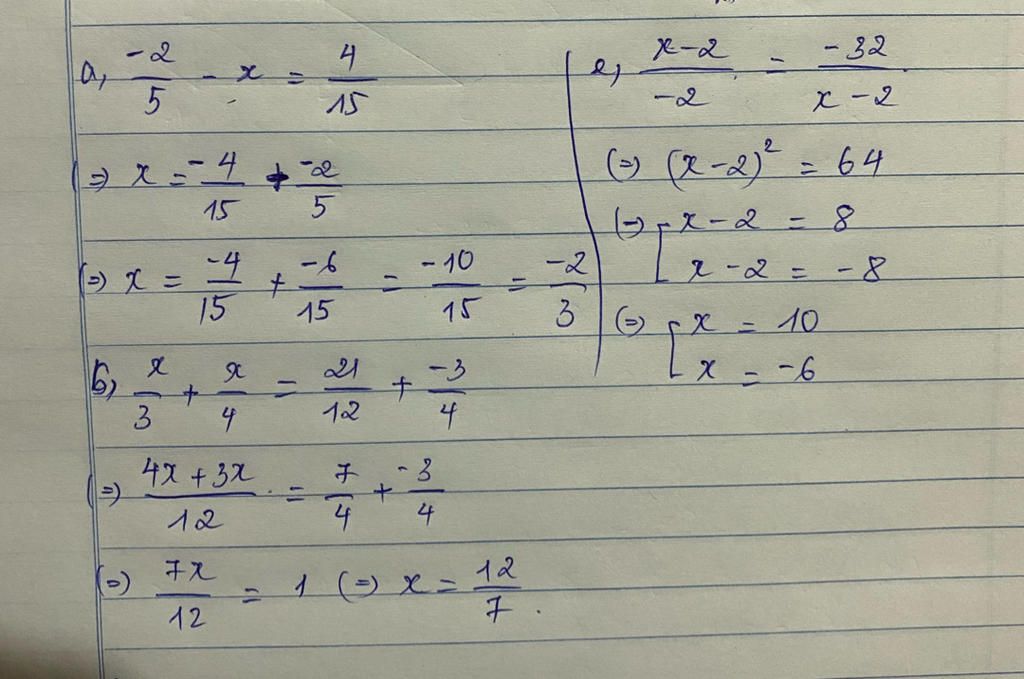 a, -2/5 - x = 4/15
(=) x = -4/15 + -2/5
(=) x = -4/15 + -6/15 = -10/15 = -2/3
b, x/3 + x/4 = 21/12 + -3/4
(=) (4x + 3x)/12 = 7/4 + -3/4
(=) 7x/12 = 1 (=) x = 12/7.
e, (x-2)/-2 = -32/(x-2)
(=) (x-2)² = 64
(=) [ x-2 = 8
x-2 = -8
(=) [ x = 10
x = -6